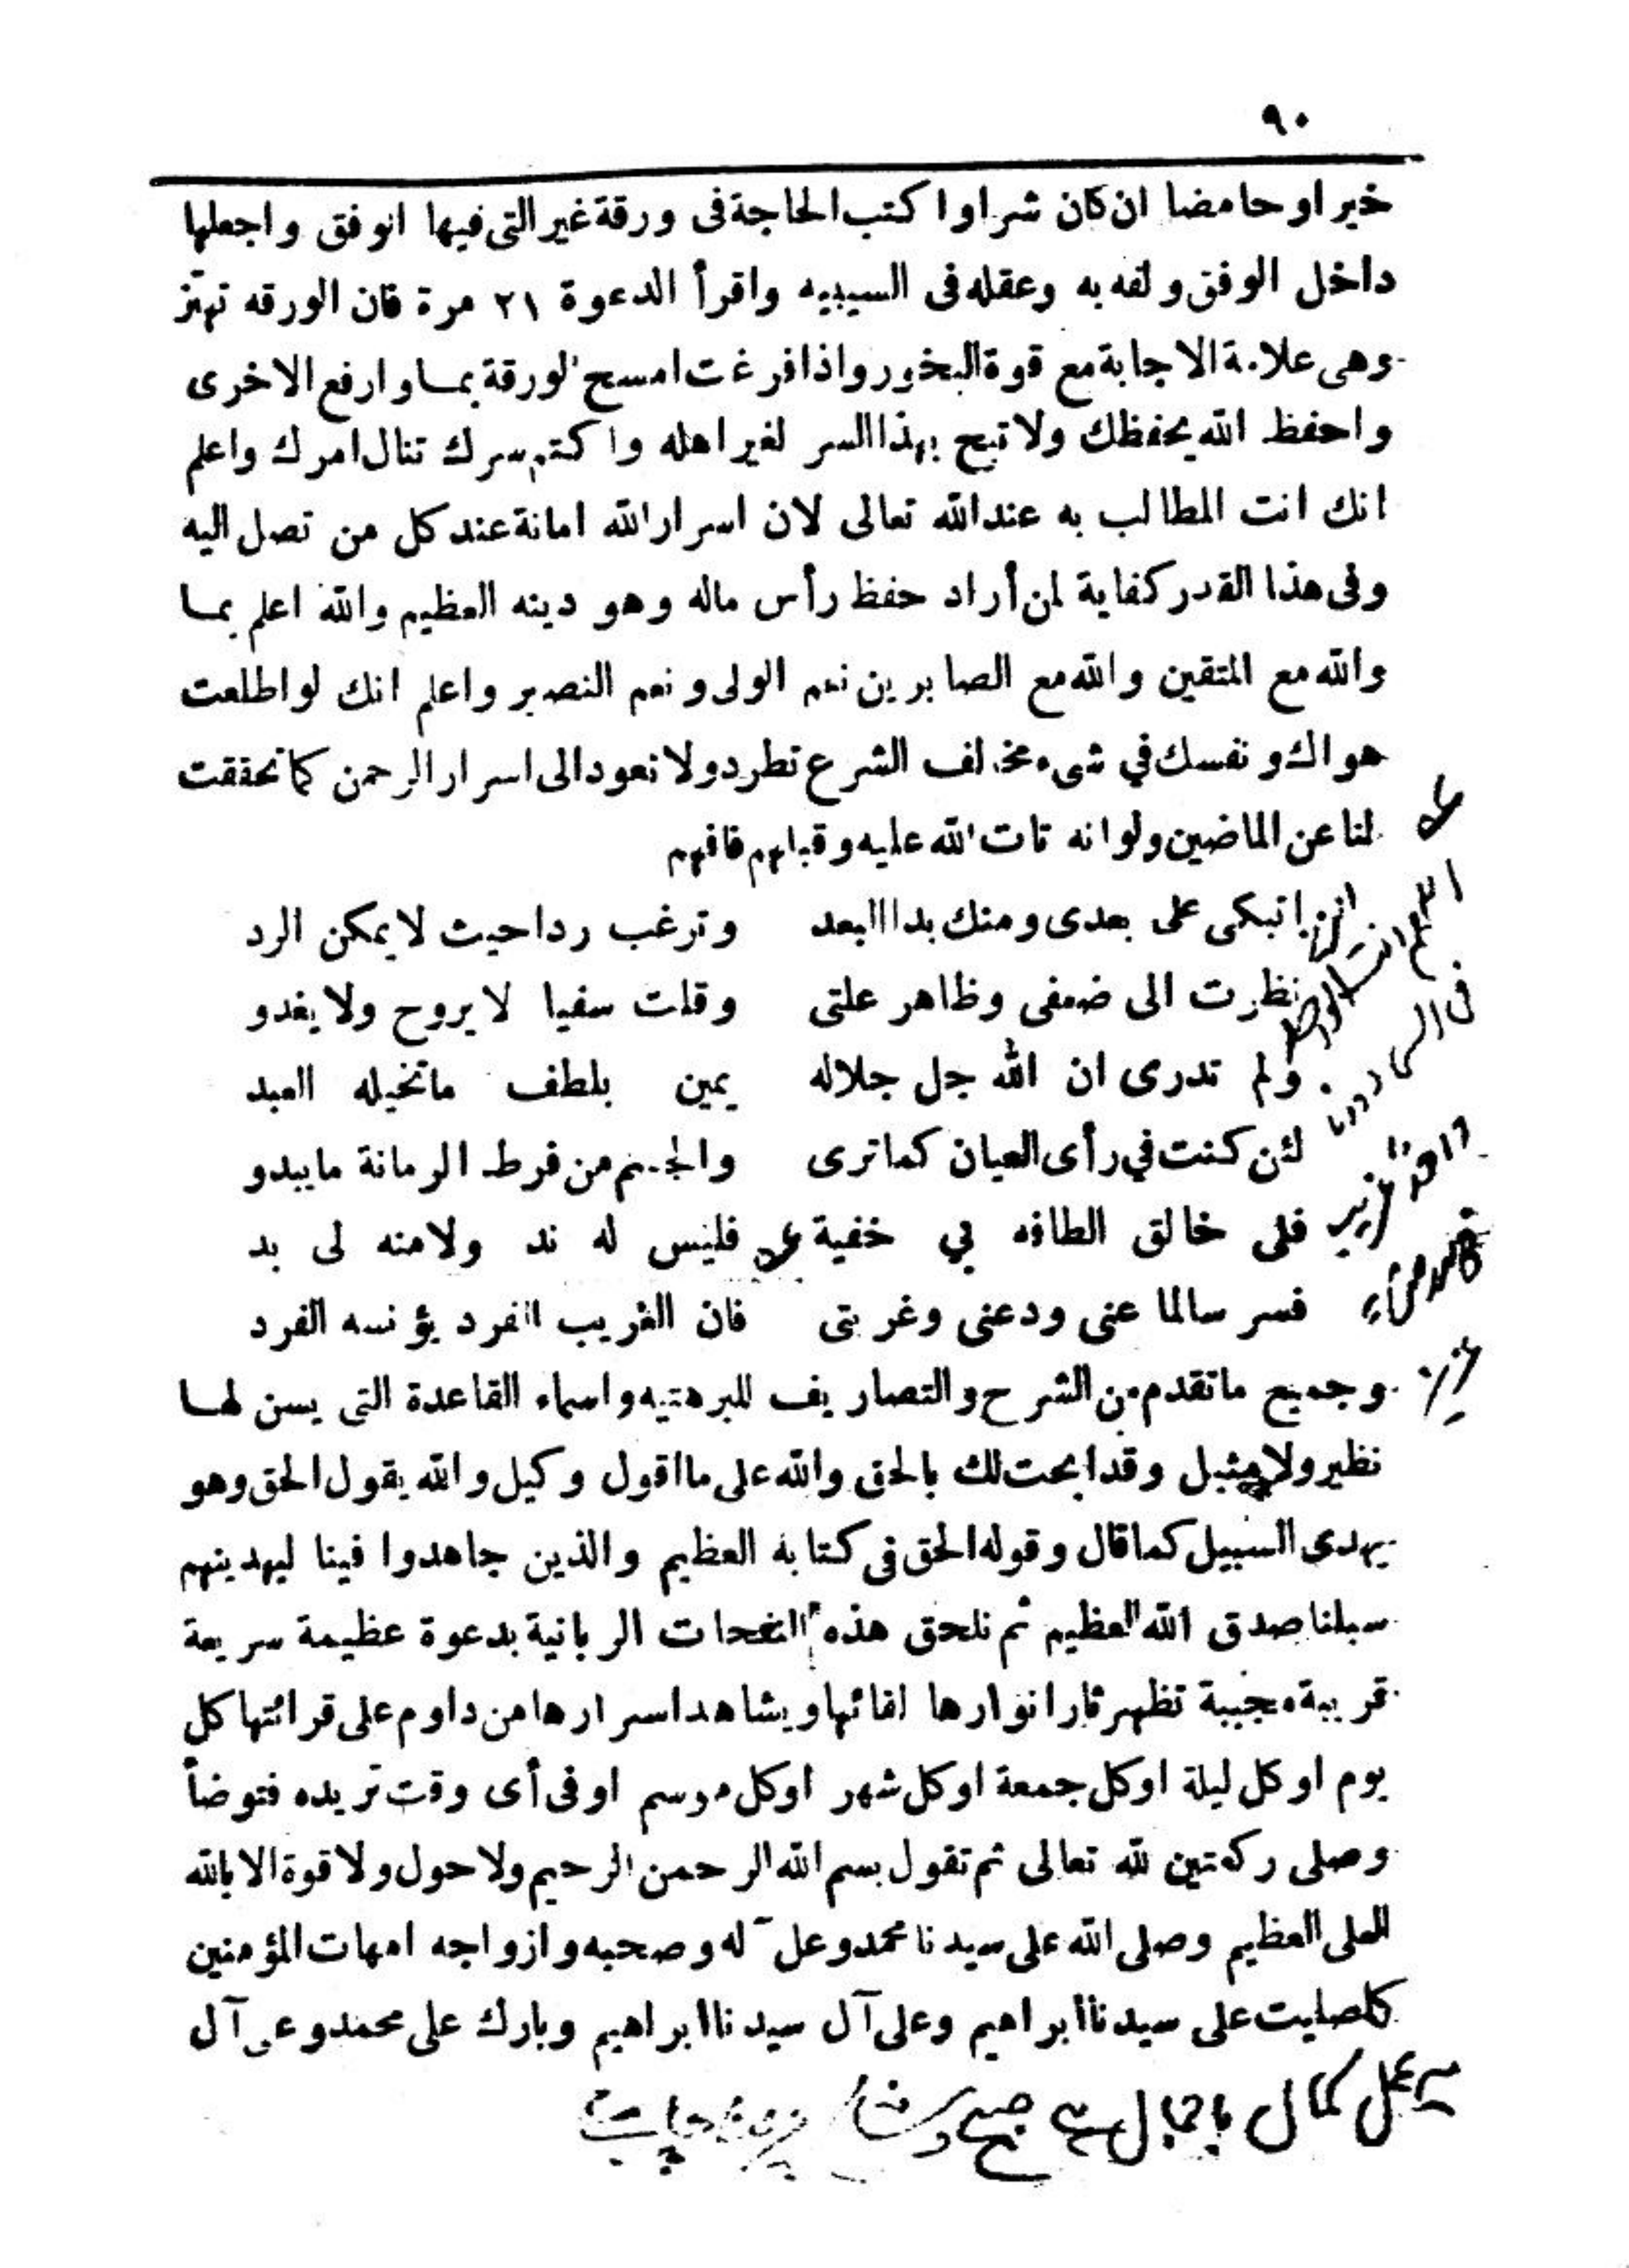 ٩٠
خير او حامضا ان كان شرا واكتب الحاجة فى ورقة غير التى فيها الوفق واجعلها
داخل الوفق ولفه به وعقله فى السيبيه واقرأ الدعوة ٢١ مرة فان الورقه تهتز
وهى علامة الاجابة مع قوة البخور واذا فرغت امسح الورقة بمـا وارفع الاخرى
واحفظ الله يحفظك ولا تبح بهذا السر لغير اهله واكتم سرك تنال امرك واعلم
انك انت المطالب به عند الله تعالى لان اسرار الله امانة عند كل من تصل اليه
وفى هذا القدر كفاية لمن أراد حفظ رأس ماله وهو دينه العظيم والله اعلم بمـا
والله مع المتقين والله مع الصابرين نعم الولى ونعم النصير واعلم انك لو اطلعت
هواك ونفسك في شىء مخالف الشرع تطرد ولا تعود الى اسرار الرحمن كما تحققت
لنا عن الماضين ولو انه تات الله عليه وقبلهم فافهم
اتبكى على بعدى ومنك بدا البعد وترغب ردا حيث لا يمكن الرد
نظرت الى ضعفى وظاهر علتى وقلت سفيا لا يروح ولا يغدو
ولم تدرى ان الله جل جلاله يمين بلطف ماتخيله العبد
لئن كنت في رأى العيان كما ترى والجسم من فرط الرمانة ما يبدو
فلى خالق الطافه بي خفية فليس له ند ولا منه لى بد
فسر سالما عنى ودعنى وغربتى فان الغريب الفرد يؤنسه الفرد
وجميع ماتقدم من الشرح والتصاريف للبرهتيه واسماء القاعدة التى يسن لهـا
نظير ولا مثيل وقد ابحت لك بالحق والله على ما اقول وكيل والله يقول الحق وهو
يهدى السبيل كما قال وقوله الحق فى كتابه العظيم والذين جاهدوا فينا ليهدينهم
سبلنا صدق الله العظيم ثم نلحق هذه النفحات الربانية بدعوة عظيمة سريعة
قريبة مجيبة تظهر ثار انوارها لقائها ويشاهد اسرارها من داوم على قرائتها كل
يوم او كل ليلة او كل جمعة او كل شهر او كل موسم او فى أى وقت تريده فتوضأ
وصلى ركعتين لله تعالى ثم تقول بسم الله الرحمن الرحيم ولا حول ولا قوة الا بالله
العلى العظيم وصلى الله على سيدنا محمد وعل آله وصحبه وازواجه امهات المؤمنين
كاصليت على سيدنا ابراهيم وعلى آل سيدنا ابراهيم وبارك على محمد وعلى آل